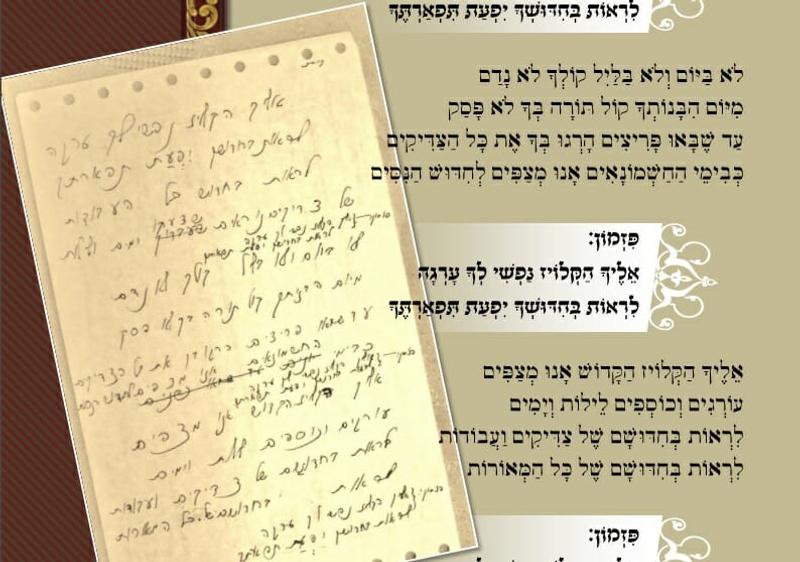 לִרְאוֹת בְּחִדּוּשְׁךָ יִפְעַת תִּפְאַרְתֶּךָ
לֹא בַּיּוֹם וְלֹא בַּלַּיִל קוֹלְךָ לֹא נָדַם
מִיּוֹם הִבָּנוֹתְךָ קוֹל תּוֹרָה בְּךָ לֹא פָּסַק
עַד שֶׁבָּאוּ פָּרִיצִים הָרְגוּ בְּךָ אֶת כָּל הַצַּדִּיקִים
כְּבִימֵי הַחַשְׁמוֹנָאִים אָנוּ מְצַפִּים לְחִדּוּשׁ הַנִּסִּים
פִּזְמוֹן:
אֵלֶיךָ הַקְּלוֹיז נַפְשִׁי לְךָ עָרְגָה
לִרְאוֹת בְּחִדּוּשְׁךָ יִפְעַת תִּפְאַרְתֶּךָ
אֵלֶיךָ הַקְּלוֹיז הַקָּדוֹשׁ אָנוּ מְצַפִּים
עוֹרְגִים וְכוֹסְפִים לֵילוֹת וְיָמִים
לִרְאוֹת בְּחִדּוּשָׁם שֶׁל צַדִּיקִים וַעֲבוֹדוֹת
לִרְאוֹת בְּחִדּוּשָׁם שֶׁל כָּל הַמְּאוֹרוֹת
פִּזְמוֹן:
אליך הקלויז נפשי לך ערגה
לראות בחדושך יפעת תפארתך
לראות בחדוש כל העבודות
של צדיקים
לא ביום ולא בליל קולך לא נדם
מיום הבנותך קול תורה בך לא פסק
עד שבאו פריצים הרגו בך את כל הצדיקים
אליך הקלויז הקדוש אנו מצפים
עורגים וכוספים לילות וימים
לראות בחדושם של צדיקים ועבודות
לראות בחדושם של כל המאורות